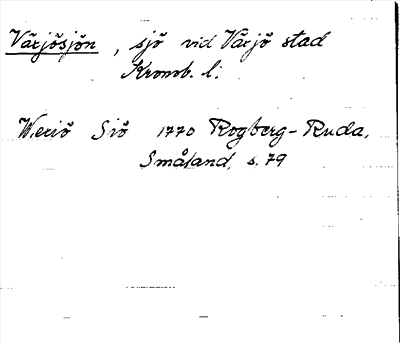 Växjösjön, sjö vid Växjö stad
Kronob. l.
Wexiö Siö 1770 Rogberg-Ruda,
Småland, s. 79